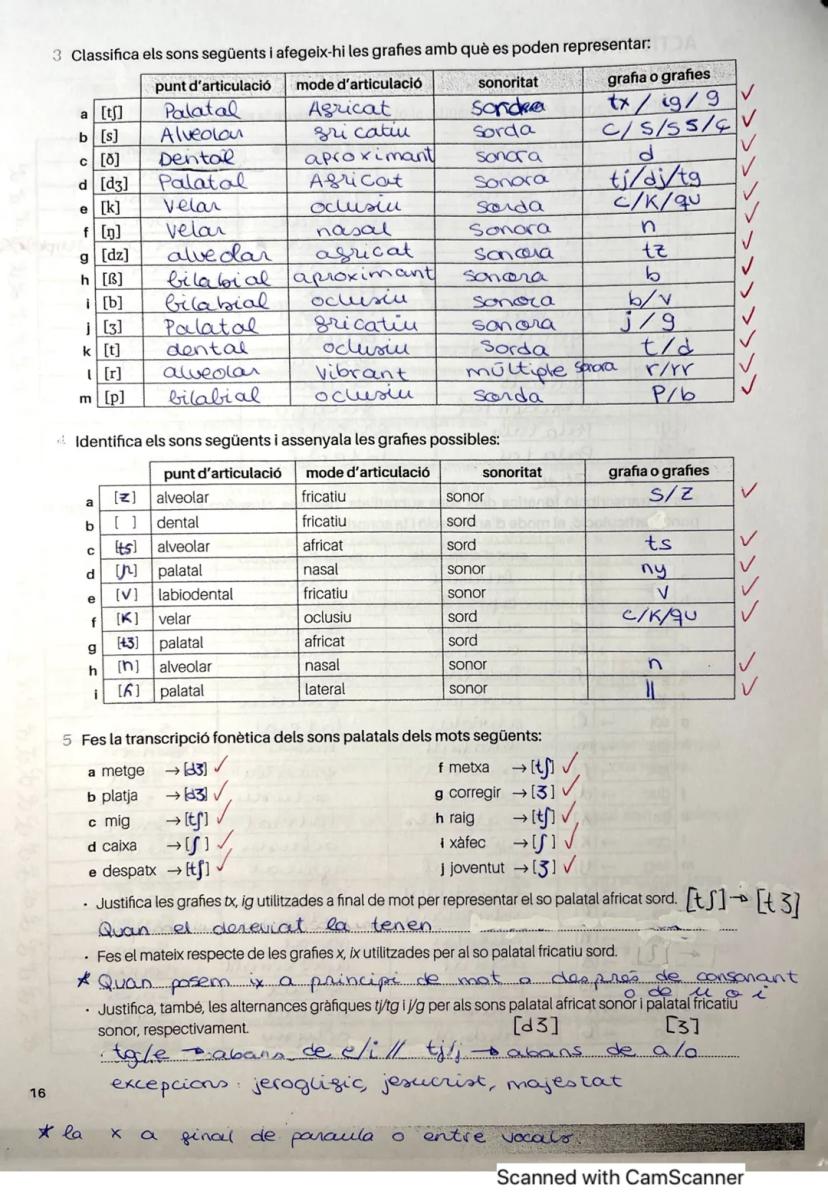 3 Classifica els sons següents i afegeix-hi les grafies amb què es poden representar:
punt d'articulació mode d'articulació sonoritat grafia o grafies
a [tʃ] Palatal Africat sorda tx / ig / g ✓
b [s] Alveolar fricatiu sorda c/s/ss/ç ✓
c [ð] Dental aproximant sonora d ✓
d [dʒ] Palatal Africat sonora tj/dj/tg ✓
e [k] velar oclusiu sorda c/k/qu ✓
f [ŋ] velar nasal sonora n ✓
g [dz] alveolar africat sonora tz ✓
h [ß] bilabial aproximant sonora b ✓
i [b] bilabial oclusiu sonora b/v ✓
j [ʒ] Palatal fricatiu sonora j/g ✓
k [t] dental oclusiu sorda t/d ✓
l [r] alveolar vibrant múltiple sonora r/rr ✓
m [p] bilabial oclusiu sorda P/b ✓
4 Identifica els sons següents i assenyala les grafies possibles:
punt d'articulació mode d'articulació sonoritat grafia o grafies
a [z] alveolar fricatiu sonor s/z ✓
b [ ] dental fricatiu sord
c [ts] alveolar africat sord ts ✓
d [ɲ] palatal nasal sonor ny ✓
e [v] labiodental fricatiu sonor v ✓
f [K] velar oclusiu sord c/k/qu ✓
g [tʒ] palatal africat sord
h [n] alveolar nasal sonor n ✓
i [ʎ] palatal lateral sonor ll ✓
5 Fes la transcripció fonètica dels sons palatals dels mots següents:
a metge → [dʒ] ✓ f metxa → [tʃ] ✓
b platja → [dʒ] ✓ g corregir → [ʒ] ✓
c mig → [tʃ] ✓ h raig → [tʃ] ✓
d caixa → [ʃ] ✓ i xàfec → [ʃ] ✓
e despatx → [tʃ] ✓ j joventut → [ʒ] ✓
· Justifica les grafies tx, ig utilitzades a final de mot per representar el so palatal africat sord. [tʃ]→[tʒ]
Quan el dereviat la tenen
· Fes el mateix respecte de les grafies x, ix utilitzades per al so palatal fricatiu sord.
* Quan posem ix a principi de mot o després de consonant
o de u o i
· Justifica, també, les alternances gràfiques tj/tg i j/g per als sons palatal africat sonor i palatal fricatiu
sonor, respectivament. [dʒ] [ʒ]
· tg/e → abans de e/i // tj/j → abans de a/o
excepcions: jeroglífic, jesucrist, majestat
16
* la x a final de paraula o entre vocals.
Scanned with CamScanner